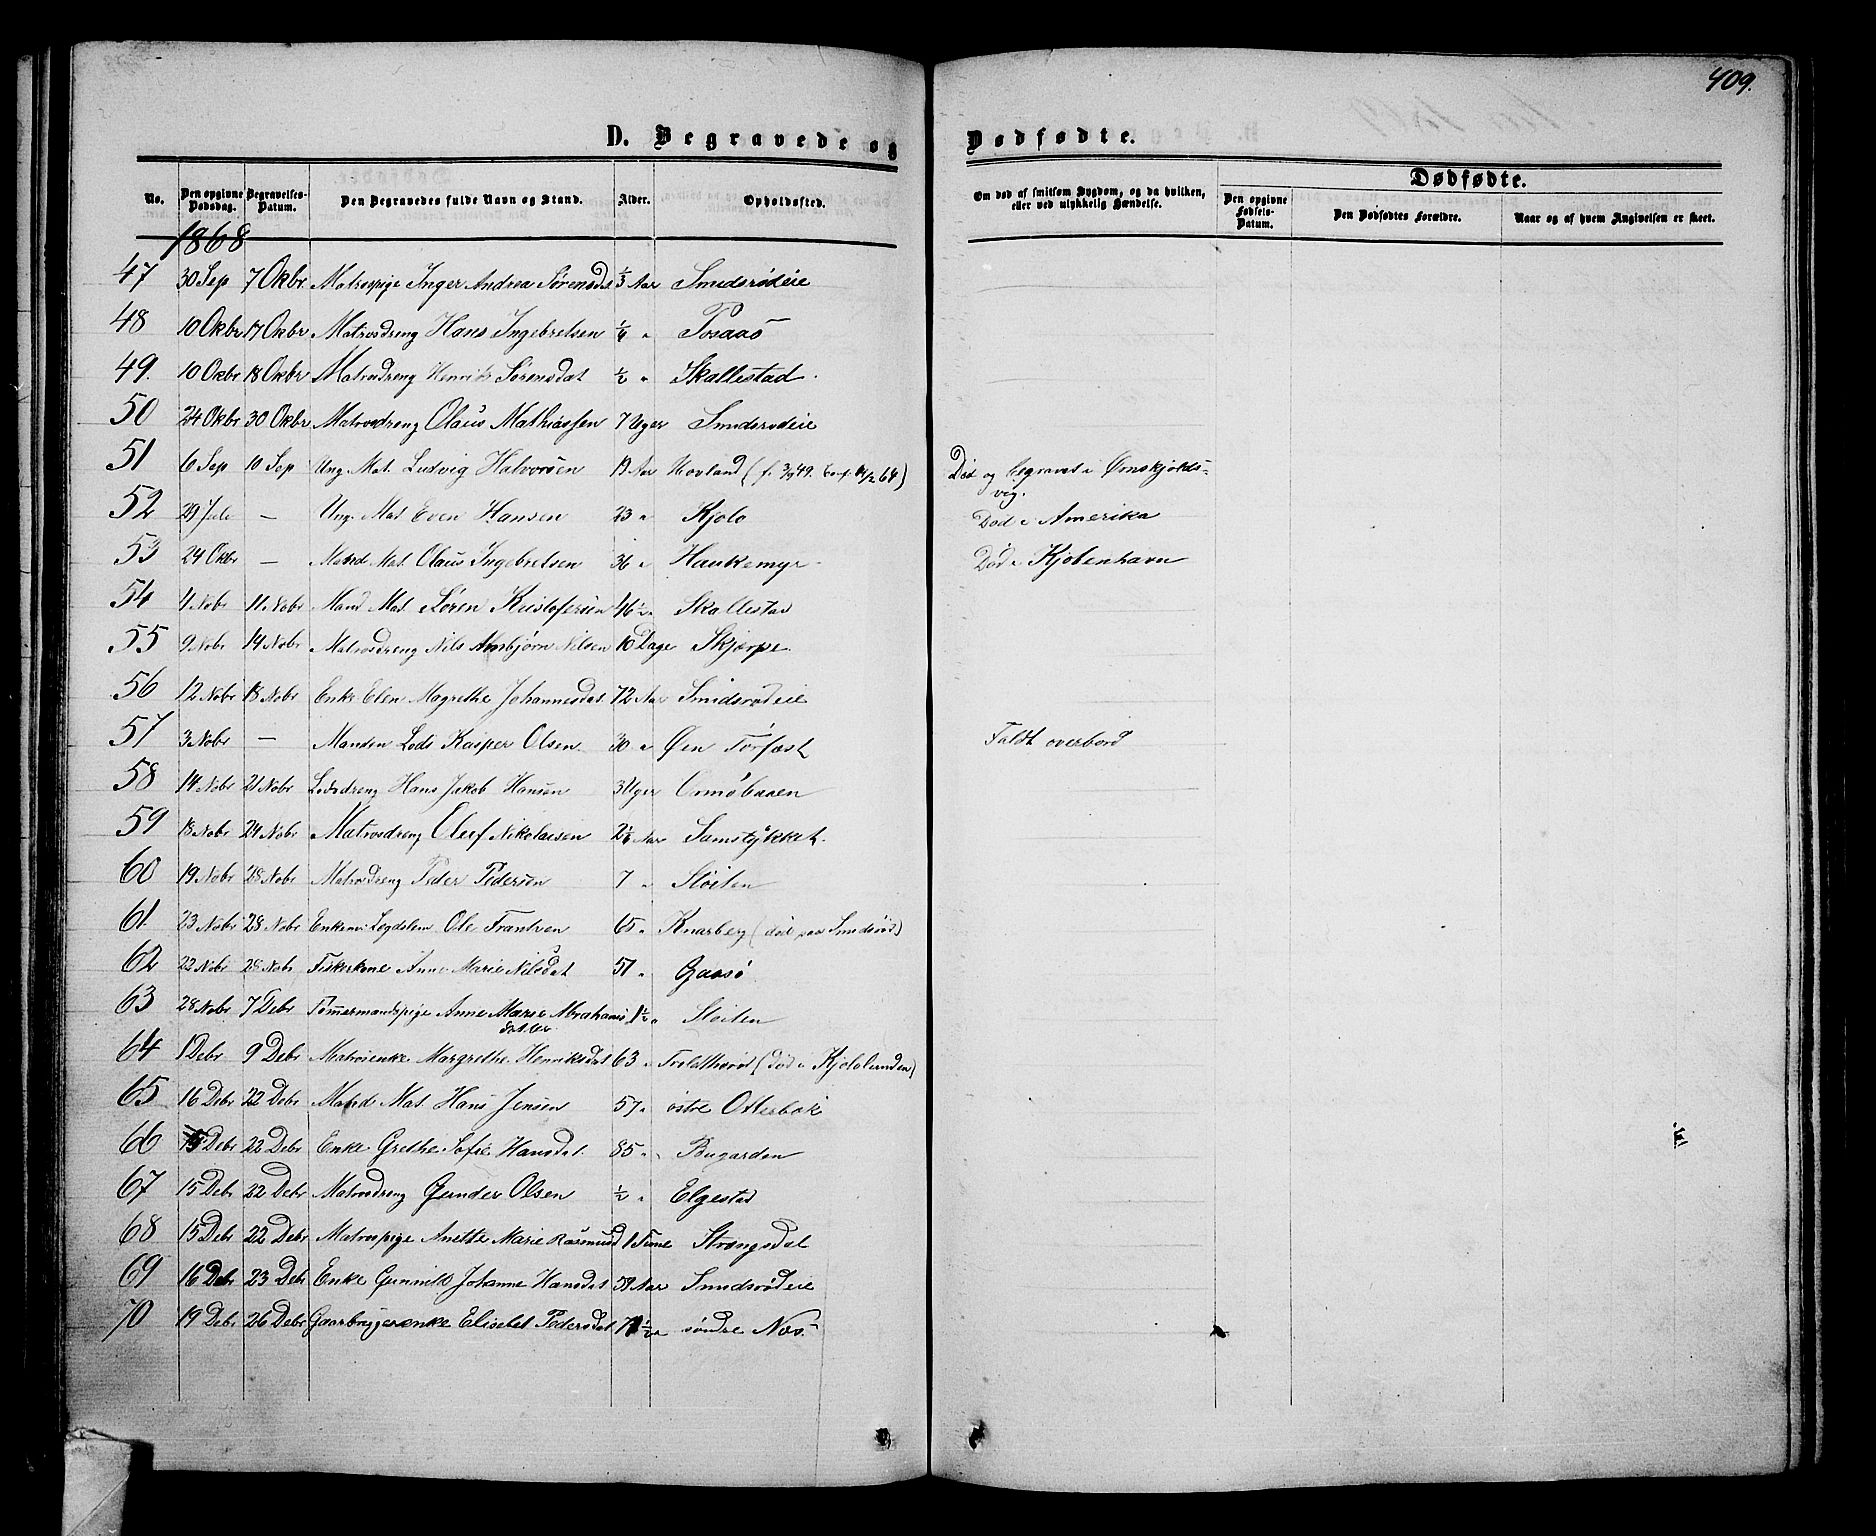 409.
D. Begravede og Dødfødte.
No. Den opgivne Dødsdag. Begravelses-Datum. Den Begravedes fulde Navn og Stand. Alder. Opholdssted. Om død af smitsom Sygdom, og da hvilken, eller ved ulykkelig Hændelse. Dødfødte. Den opgivne Fødsels-Datum. Den Dødfødtes Forældre. Naar og af hvem Angivelsen er skeet.
1868
47 30 Sep 7 Okbr Matrospige Inger Andrea Sørensdat 1/3 Aar Smidsrødeie
48 10 Okbr 17 Okbr Matrosdreng Hans Ingebretsen " Posaas
49. 10 Okbr 18 Okbr Matrosdreng Henrik Sørensdat 1/2 " Skallestad
50 24 Okbr 30 Okbr Matrosdreng Olaus Mathiassen 7 Uger Smidsrødeie
51 6 Sep 10 Sep Ung. Mat. Ludvig Halvorsen 19 Aar Hovland Død og begravet i Ørnskjolds-
vig.
52 29 Juli — Ung. Mat Even Hansen 23 " Kjølø Død i Amerika
53 24 Okbr — Mand Mat. Olaus Ingebretsen 36 " Haukemyr Død i Kjøbenhavn
54 4 Nobr 11 Nobr Mand Mat. Søren Kristofersen 46 1/2 " Skallestad
55 9 Nobr 14 Nobr Matrosdreng Nils Arnbjørn Nilsen 10 Dage Skjærpe
56 12 Nobr 18 Nobr Enke Elen Magrethe Johannesdat 72 Aar Smidsrødeie
57 3 Nobr — Manden Lods Kasper Olsen 30 " Øen Torfæst Faldt overbord
58 14 Nobr 21 Nobr Lodsdreng Hans Jakob Hansen 3 Uger Ormøbaaen
59 18 Nobr 24 Nobr Matrosdreng Oluf Nikolaisen Aar Samstykket.
60 19 Nobr 28 Nobr Matrosdreng Peder Pedersen 7 " Sloiten
61. 23 Nobr 28 Nobr Enkem. Lægdslem Ole Frantsen 65 " Knarberg (død paa Smidsrød)
62 22 Nobr 28 Nobr Fiskerkone Anne Marie Nilsdat 51 " Gaasø
63 28 Nobr 7 Debr Tømmermandspige Anne Marie Abrahams 1 1/2 " Sloiten
datter
64 1 Debr 9 Debr Matrosenke Margrethe Henriksdat 63 " (død i Kjølølunden)
65 16 Debr 22 Debr Mand Mat. Hans Jensen 57 " østre Otterbæk
66 15 Debr 22 Debr Enke Grethe Sofie Hansdat. 85 " Bugarden
67 15 Debr 22 Debr Matrosdreng Gunder Olsen 1/2 " Elgestad
68 15 Debr 22 Debr Matrospige Anette Marie Rasmusd 1 Time Strængsdal
69 16 Debr 23 Debr Enke Gunnild Johanne Hansdat 59 Aar Smidsrødeie
70 19 Debr 26 Debr Gaarbrugerenke Elisebet Pedersdat 71 1/2 " søndre Næs